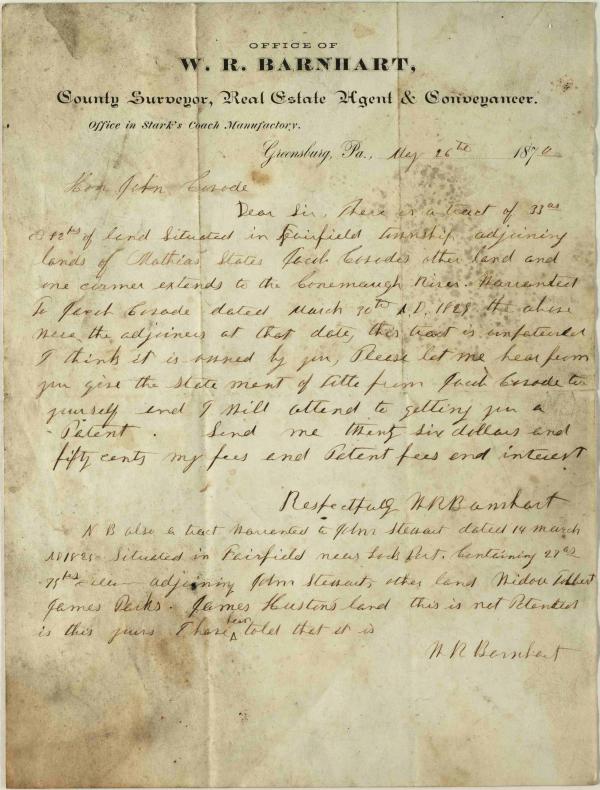 OFFICE OF
W. R. BARNHART,
County Surveyor, Real Estate Agent & Conveyancer.
Office in Stark's Coach Manufactory.
Greensburg, Pa., May 26th 1870
Hon John Covode
Dear Sir, there is a tract of 33as
& 12ps of land Situated in Fairfield township adjoining
lands of Mathias States Jacob Covodes other land and
one corner extends to the Conemaugh River. Warranted
To Jacob Covode dated March 30th A.D. 1829 the above
were the adjoiners at that date, this tract is unpatented
I think it is owned by you, Please let me hear from
you give the state ment of title from Jacob Covode to
yourself and I Will attend to getting you a
Patent. Send me thirty six dollars and
fifty cents my fees and Patent fees and interest
Respectfully W R Barnhart
N B also a tract Warranted to John Stewart dated 14 march
Situated in Fairfield near Lock Port. Containing 27as
75ps adjoining John Stewart other land Widow
James Parks. James Hustons land this is not Patented
is this yours I have been told that it is
W R Barnhart